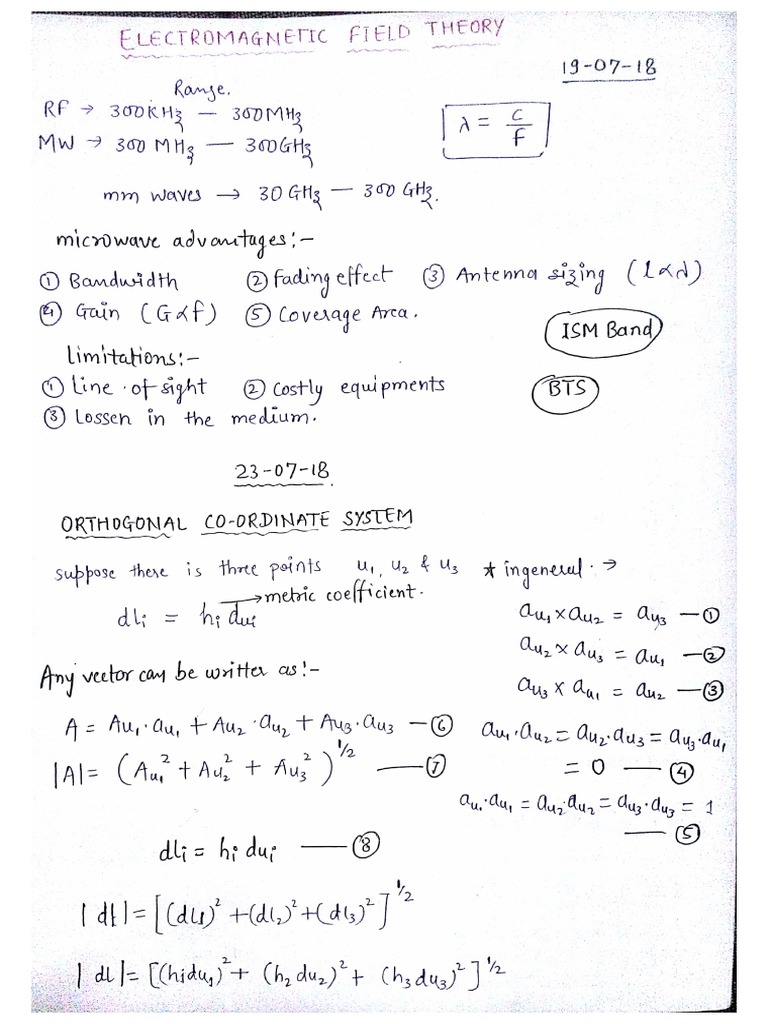 ELECTROMAGNETIC FIELD THEORY
19-07-18
Range.
RF → 300KHz — 300MHz
MW → 300 MHz — 300GHz
λ = c/f
mm waves → 30 GHz — 300 GHz.
microwave advantages:-
① Bandwidth ② Fading effect ③ Antenna sizing (l∝λ)
④ Gain (G∝f) ⑤ Coverage Area.
ISM Band
limitations:-
① Line of sight ② Costly equipments
BTS
③ Lossen in the medium.
23-07-18.
ORTHOGONAL CO-ORDINATE SYSTEM
suppose there is three points u₁, u₂ & u₃ * ingeneral. →
→ metric coefficient.
dli = hi dui
au₁ × au₂ = au₃ — ①
au₂ × au₃ = au₁ — ②
Any vector can be writter as:-
au₃ × au₁ = au₂ — ③
A = Au₁.au₁ + Au₂.au₂ + Au₃.au₃ — ⑥
au₁.au₂ = au₂.au₃ = au₃.au₁
= 0 — ④
|A| = (Au₁² + Au₂² + Au₃²)^1/2 — ⑦
au₁.au₁ = au₂.au₂ = au₃.au₃ = 1
— ⑤
dli = hi dui — ⑧
|dl| = [(dl₁)² + (dl₂)² + (dl₃)²]^1/2
|dl| = [(h₁du₁)² + (h₂du₂)² + (h₃du₃)²]^1/2